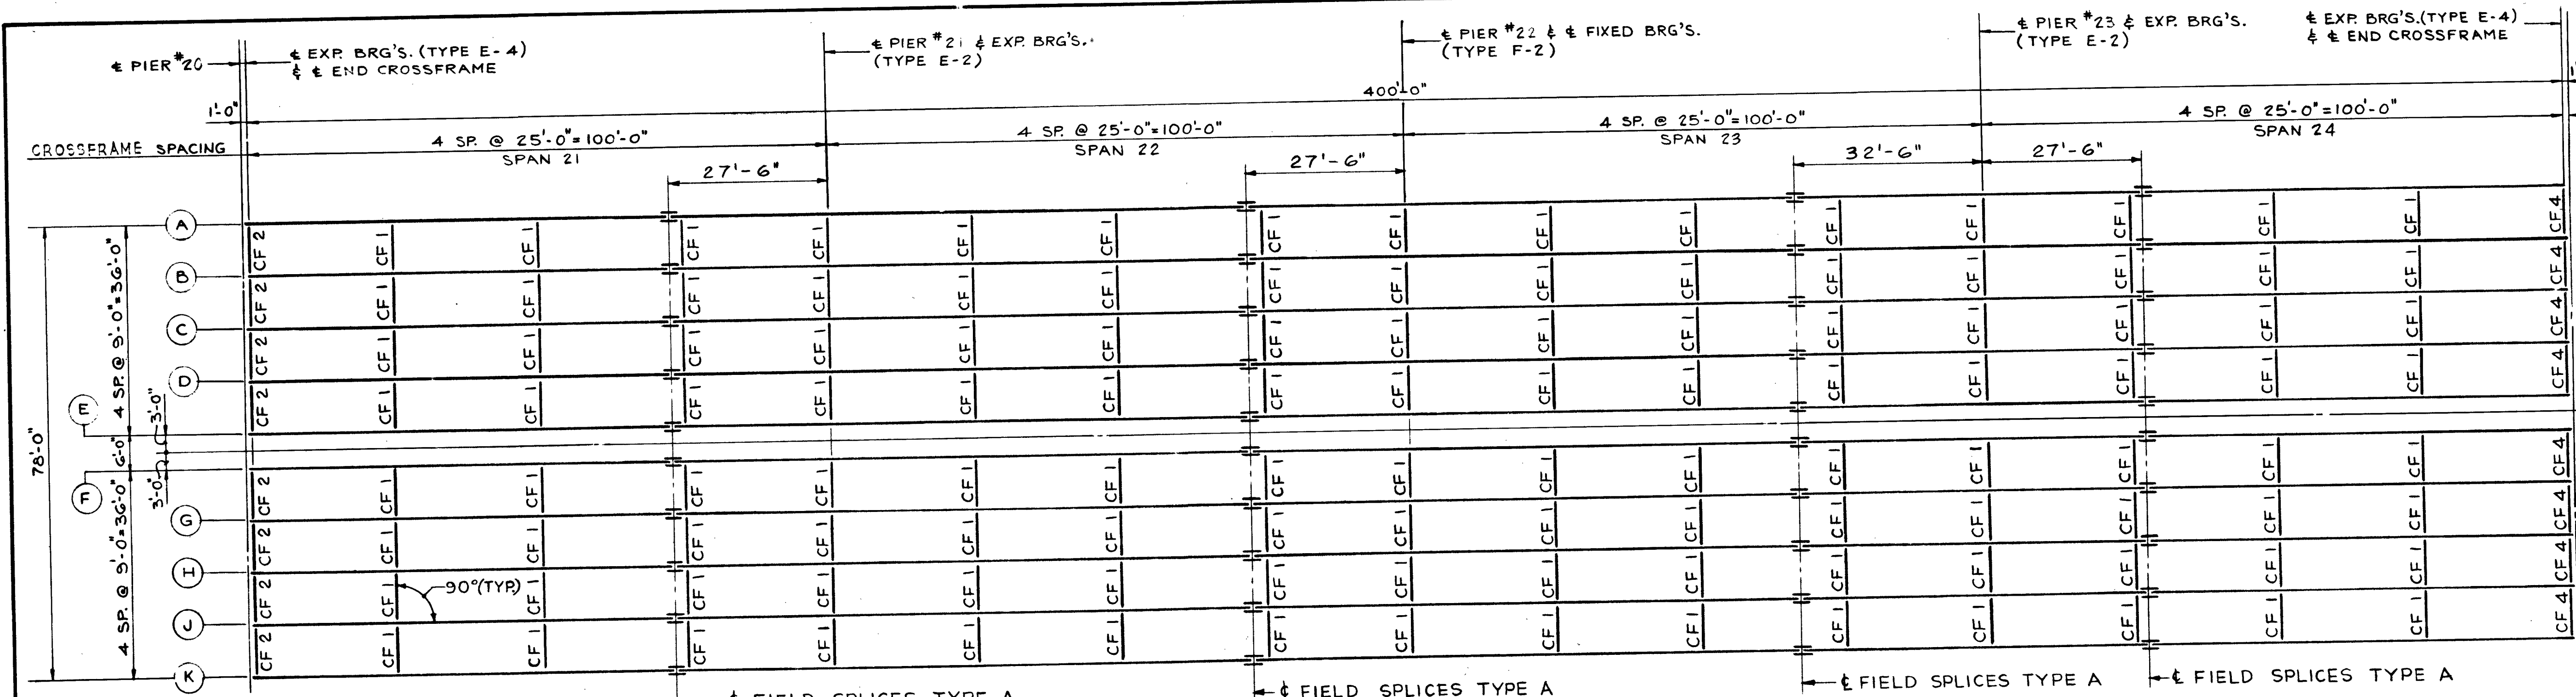 ℄ PIER #20
℄ EXP. BRG'S. (TYPE E-4)
& ℄ END CROSSFRAME
℄ PIER #21 & EXP. BRG'S.
(TYPE E-2)
℄ PIER #22 & ℄ FIXED BRG'S.
(TYPE F-2)
℄ PIER #23 & EXP. BRG'S.
(TYPE E-2)
℄ EXP. BRG'S. (TYPE E-4)
& ℄ END CROSSFRAME
1'-0"
400'-0"
CROSSFRAME SPACING
4 SP. @ 25'-0"=100'-0"
SPAN 21
4 SP. @ 25'-0"=100'-0"
SPAN 22
4 SP. @ 25'-0"=100'-0"
SPAN 23
4 SP. @ 25'-0"=100'-0"
SPAN 24
27'-6"
27'-6"
32'-6"
27'-6"
A
CF 2 CF 1 CF 1 CF 1 CF 1 CF 1 CF 1 CF 1 CF 1 CF 1 CF 1 CF 1 CF 1 CF 1 CF 1 CF 1 CF 4
B
CF 2 CF 1 CF 1 CF 1 CF 1 CF 1 CF 1 CF 1 CF 1 CF 1 CF 1 CF 1 CF 1 CF 1 CF 1 CF 1 CF 4
C
CF 2 CF 1 CF 1 CF 1 CF 1 CF 1 CF 1 CF 1 CF 1 CF 1 CF 1 CF 1 CF 1 CF 1 CF 1 CF 1 CF 4
D
CF 2 CF 1 CF 1 CF 1 CF 1 CF 1 CF 1 CF 1 CF 1 CF 1 CF 1 CF 1 CF 1 CF 1 CF 1 CF 1 CF 4
E
4 SP. @ 9'-0"=36'-0"
3'-0"
6'-0"
78'-0"
3'-0"
4 SP. @ 9'-0"=36'-0"
F
CF 2 CF 1 CF 1 CF 1 CF 1 CF 1 CF 1 CF 1 CF 1 CF 1 CF 1 CF 1 CF 1 CF 1 CF 1 CF 1 CF 4
G
CF 2 CF 1 CF 1 CF 1 CF 1 CF 1 CF 1 CF 1 CF 1 CF 1 CF 1 CF 1 CF 1 CF 1 CF 1 CF 1 CF 4
H
CF 2 CF 1 CF 1 CF 1 CF 1 CF 1 CF 1 CF 1 CF 1 CF 1 CF 1 CF 1 CF 1 CF 1 CF 1 CF 1 CF 4
90° (TYP.)
J
CF 2 CF 1 CF 1 CF 1 CF 1 CF 1 CF 1 CF 1 CF 1 CF 1 CF 1 CF 1 CF 1 CF 1 CF 1 CF 1 CF 4
K
℄ FIELD SPLICES TYPE A
℄ FIELD SPLICES TYPE A
℄ FIELD SPLICES TYPE A
℄ FIELD SPLICES TYPE A